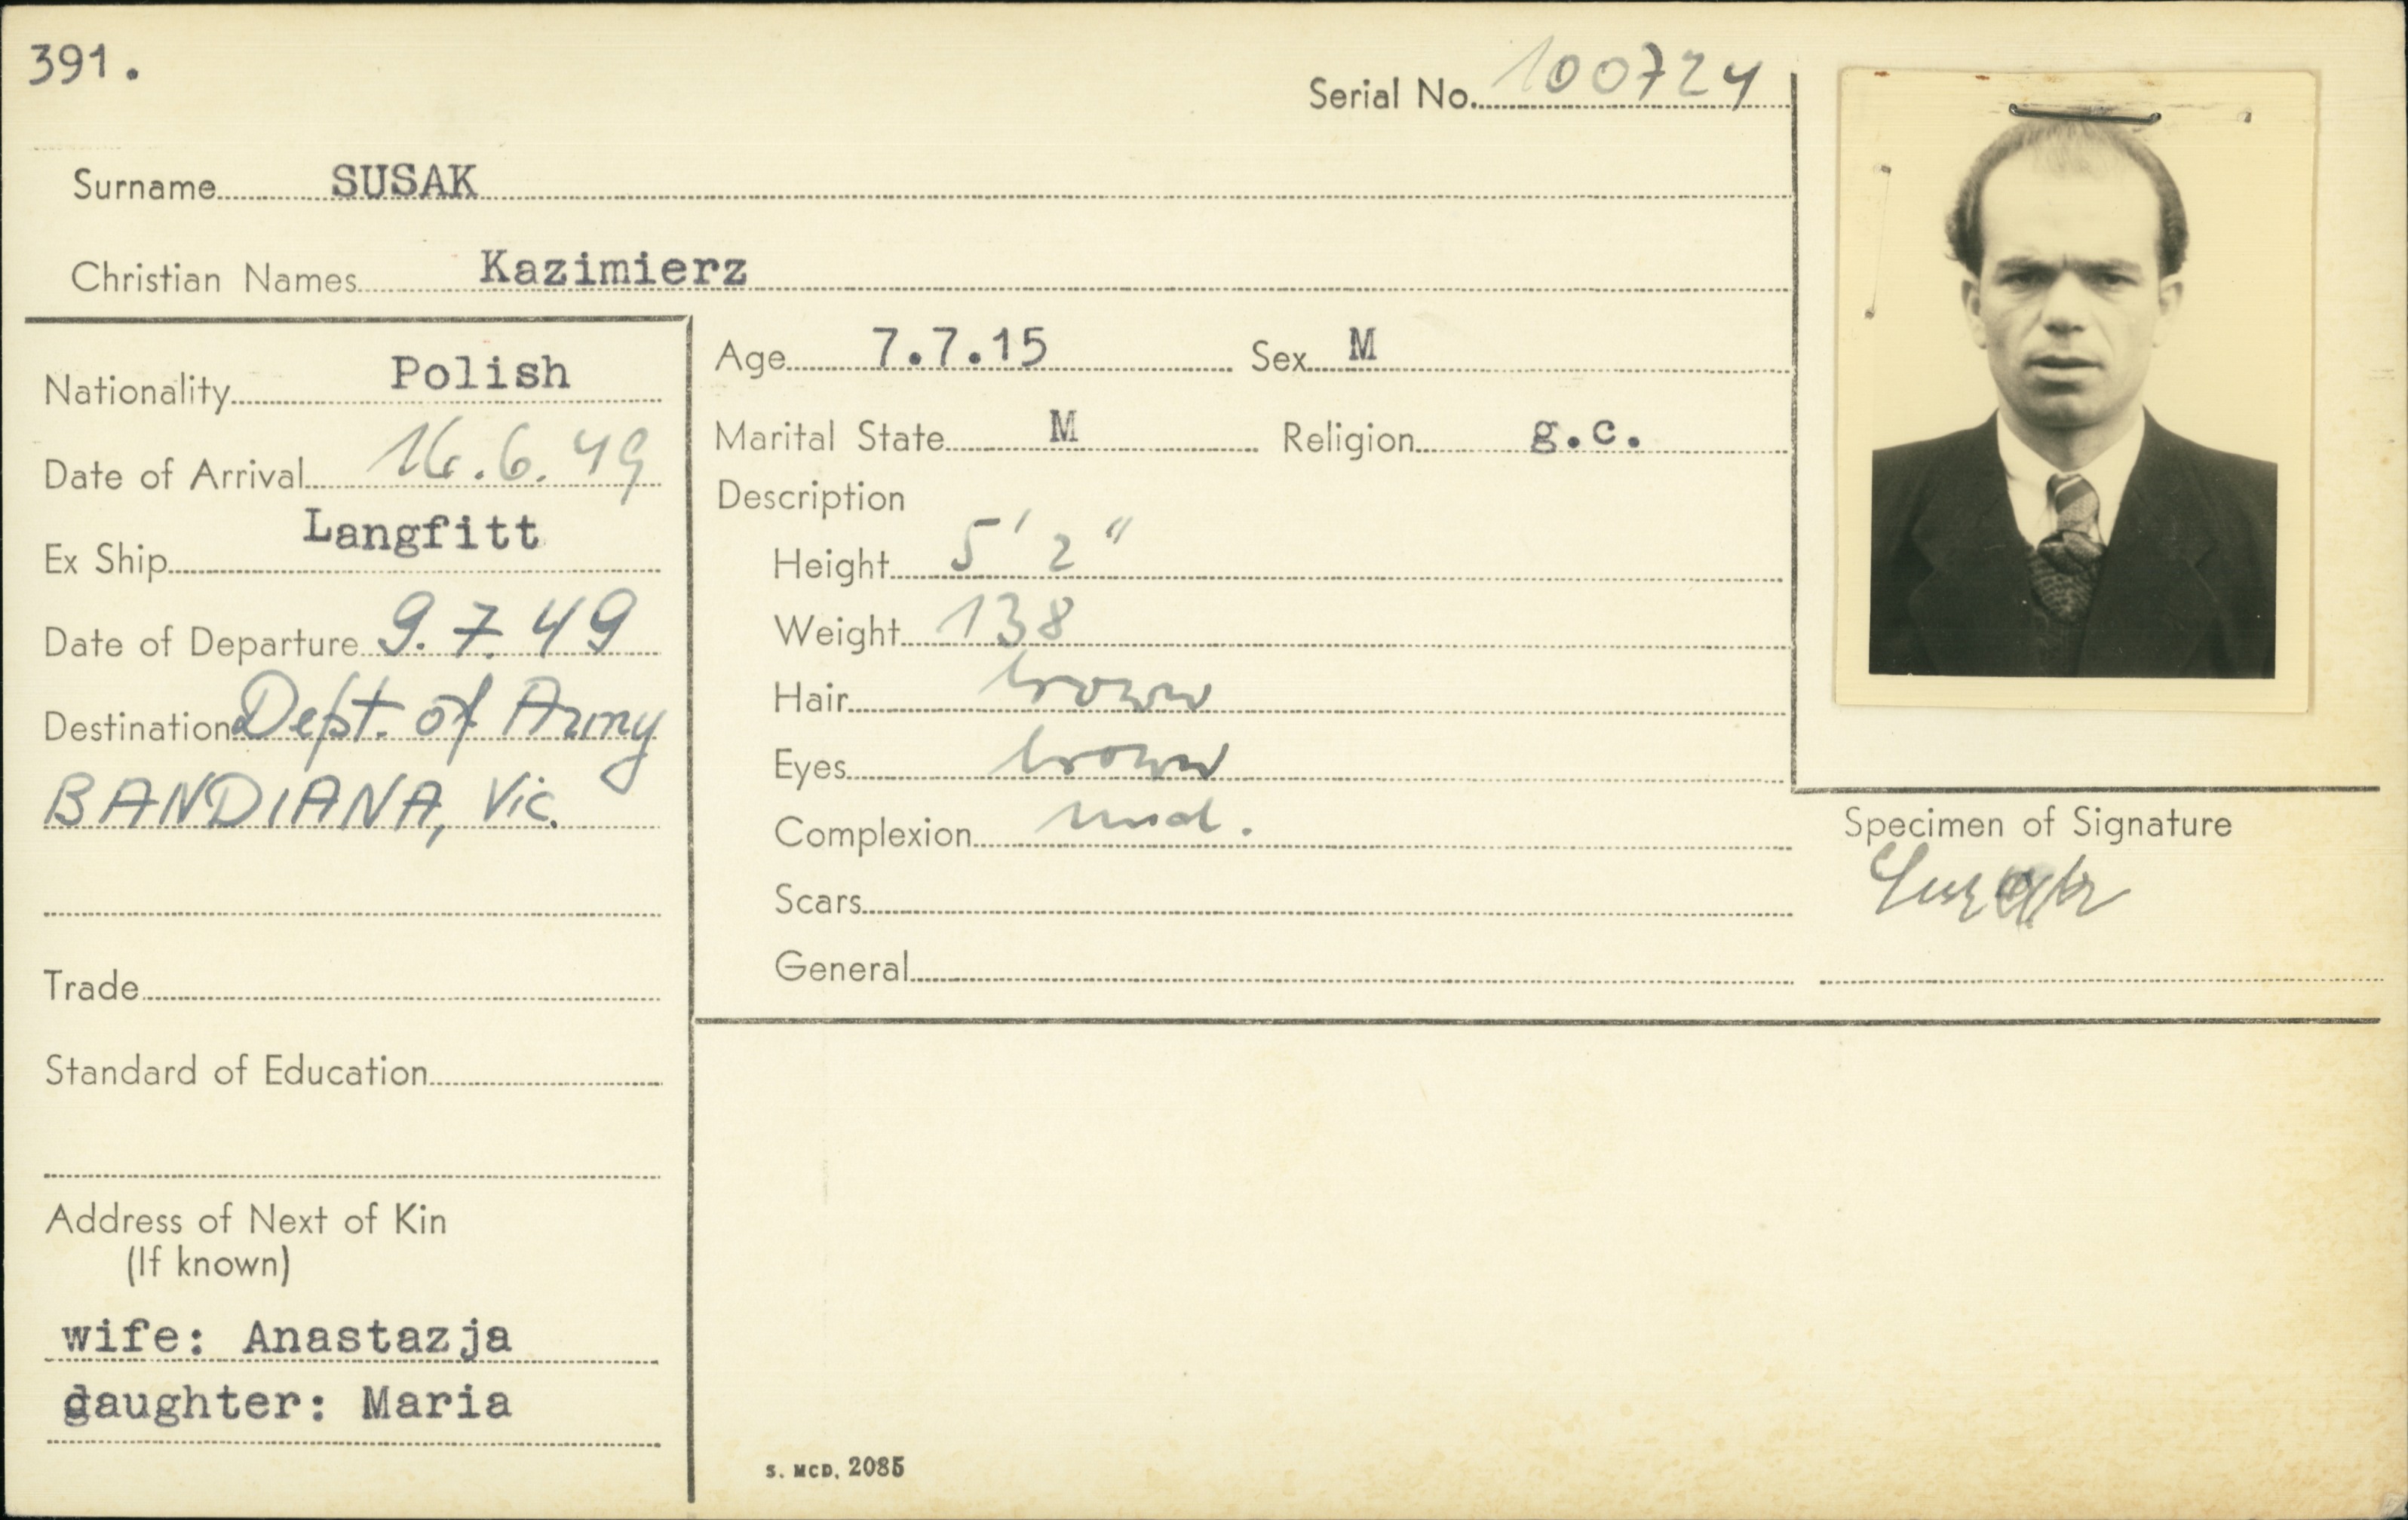 391.
Serial No. 100724
Surname SUSAK
Christian Names Kazimierz
Nationality Polish
Date of Arrival 16.6.49
Ex Ship Langfitt
Date of Departure 9.7.49
Destination Dept. of Army
BANDIANA, Vic.
Trade
Standard of Education
Address of Next of Kin
(If known)
wife: Anastazja
daughter: Maria
Age 7.7.15 Sex M
Marital State M Religion g.c.
Description
Height 5' 2"
Weight 138
Hair brown
Eyes brown
Complexion med.
Scars
General
Specimen of Signature
S. MCD. 2085